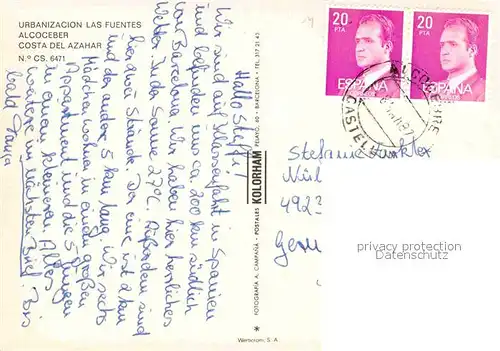 URBANIZACION LAS FUENTES
ALCOCEBER
COSTA DEL AZAHAR
N.º CS. 6471
Hallo Steffi!
Wir sind auf Klassenfahrt in Spanien
und befinden uns ca. 200 km südlich
von Barcelona. Wir haben hier herrliches
Wetter. In der Sonne 27°C. Außerdem sind
hier zwei Strände. Der eine ist 2 km
und der andere 5 km lang. Wir sechs
Mädchen wohnen in einem großen
Appartment und die 5 Jungen
in einem kleineren. Alles
weitere im nächsten Brief. Bis
bald
FOTOGRAFIA A. CAMPAÑA - POSTALES KOLORHAM PELAYO, 60 - BARCELONA - TEL. 317 21 43
Wertcrom, S. A.
20
PTA
ESPAÑA
20
PTA
ESPAÑA
ALCOCEBRE
CASTELLON
Stefanie
492
Germ
privacy protection
Datenschutz